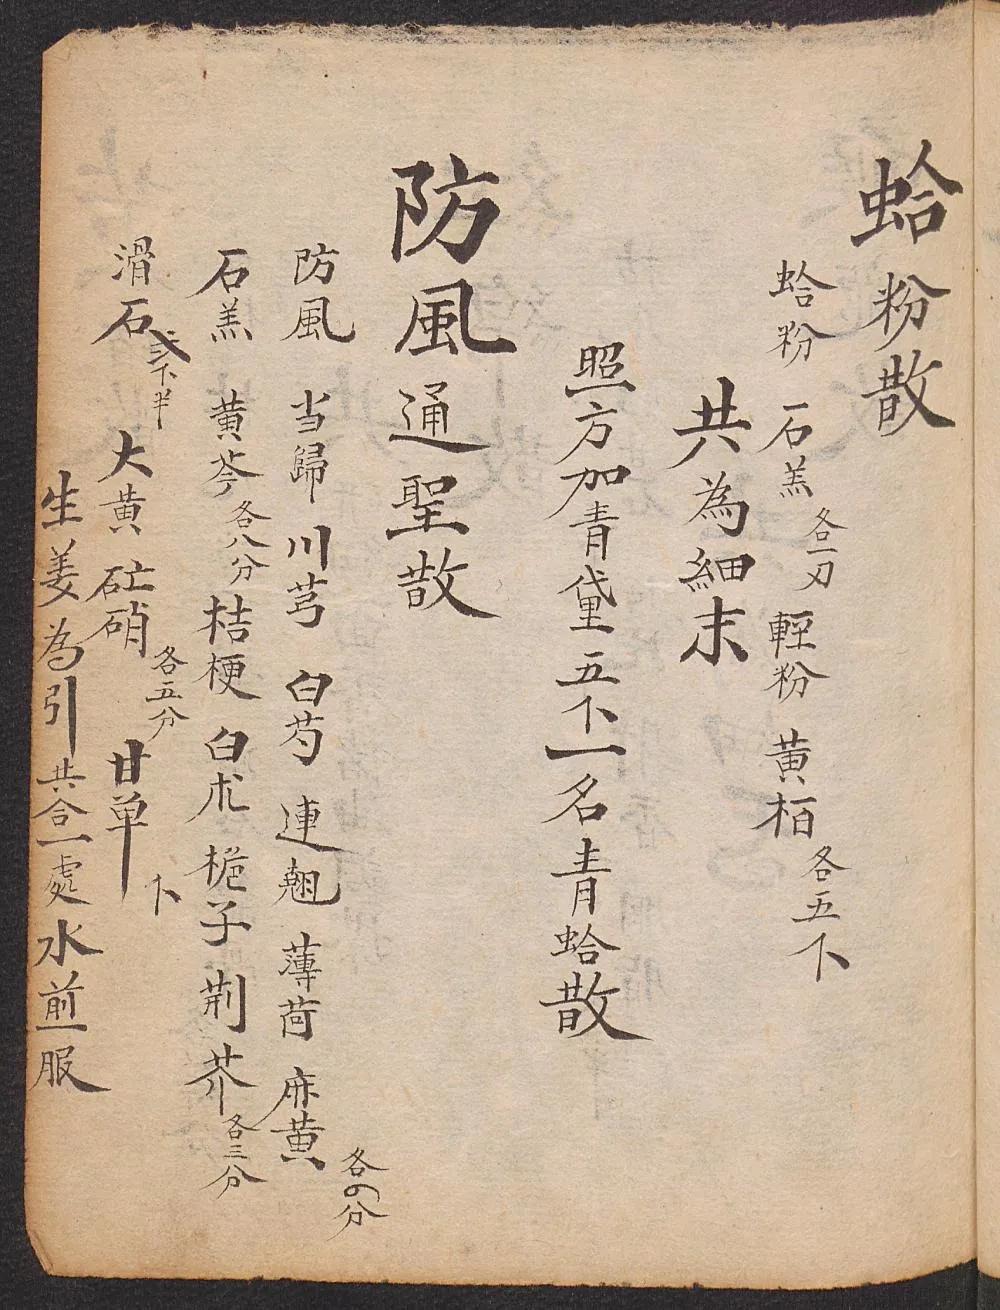 蛤粉散
蛤粉 石羔 各一刃 輕粉 黄栢 各五下
共為細末
照方加青黛五下一名青蛤散
防風通聖散
防風 当歸 川芎 白芍 連翹 薄荷 麻黄 各の分
石羔 黄芩 各八分 桔梗 白朮 桅子 荆芥 各三分
滑石 下半 大黄 硭硝 各五分 甘单 下
生姜為引共合一處水煎服